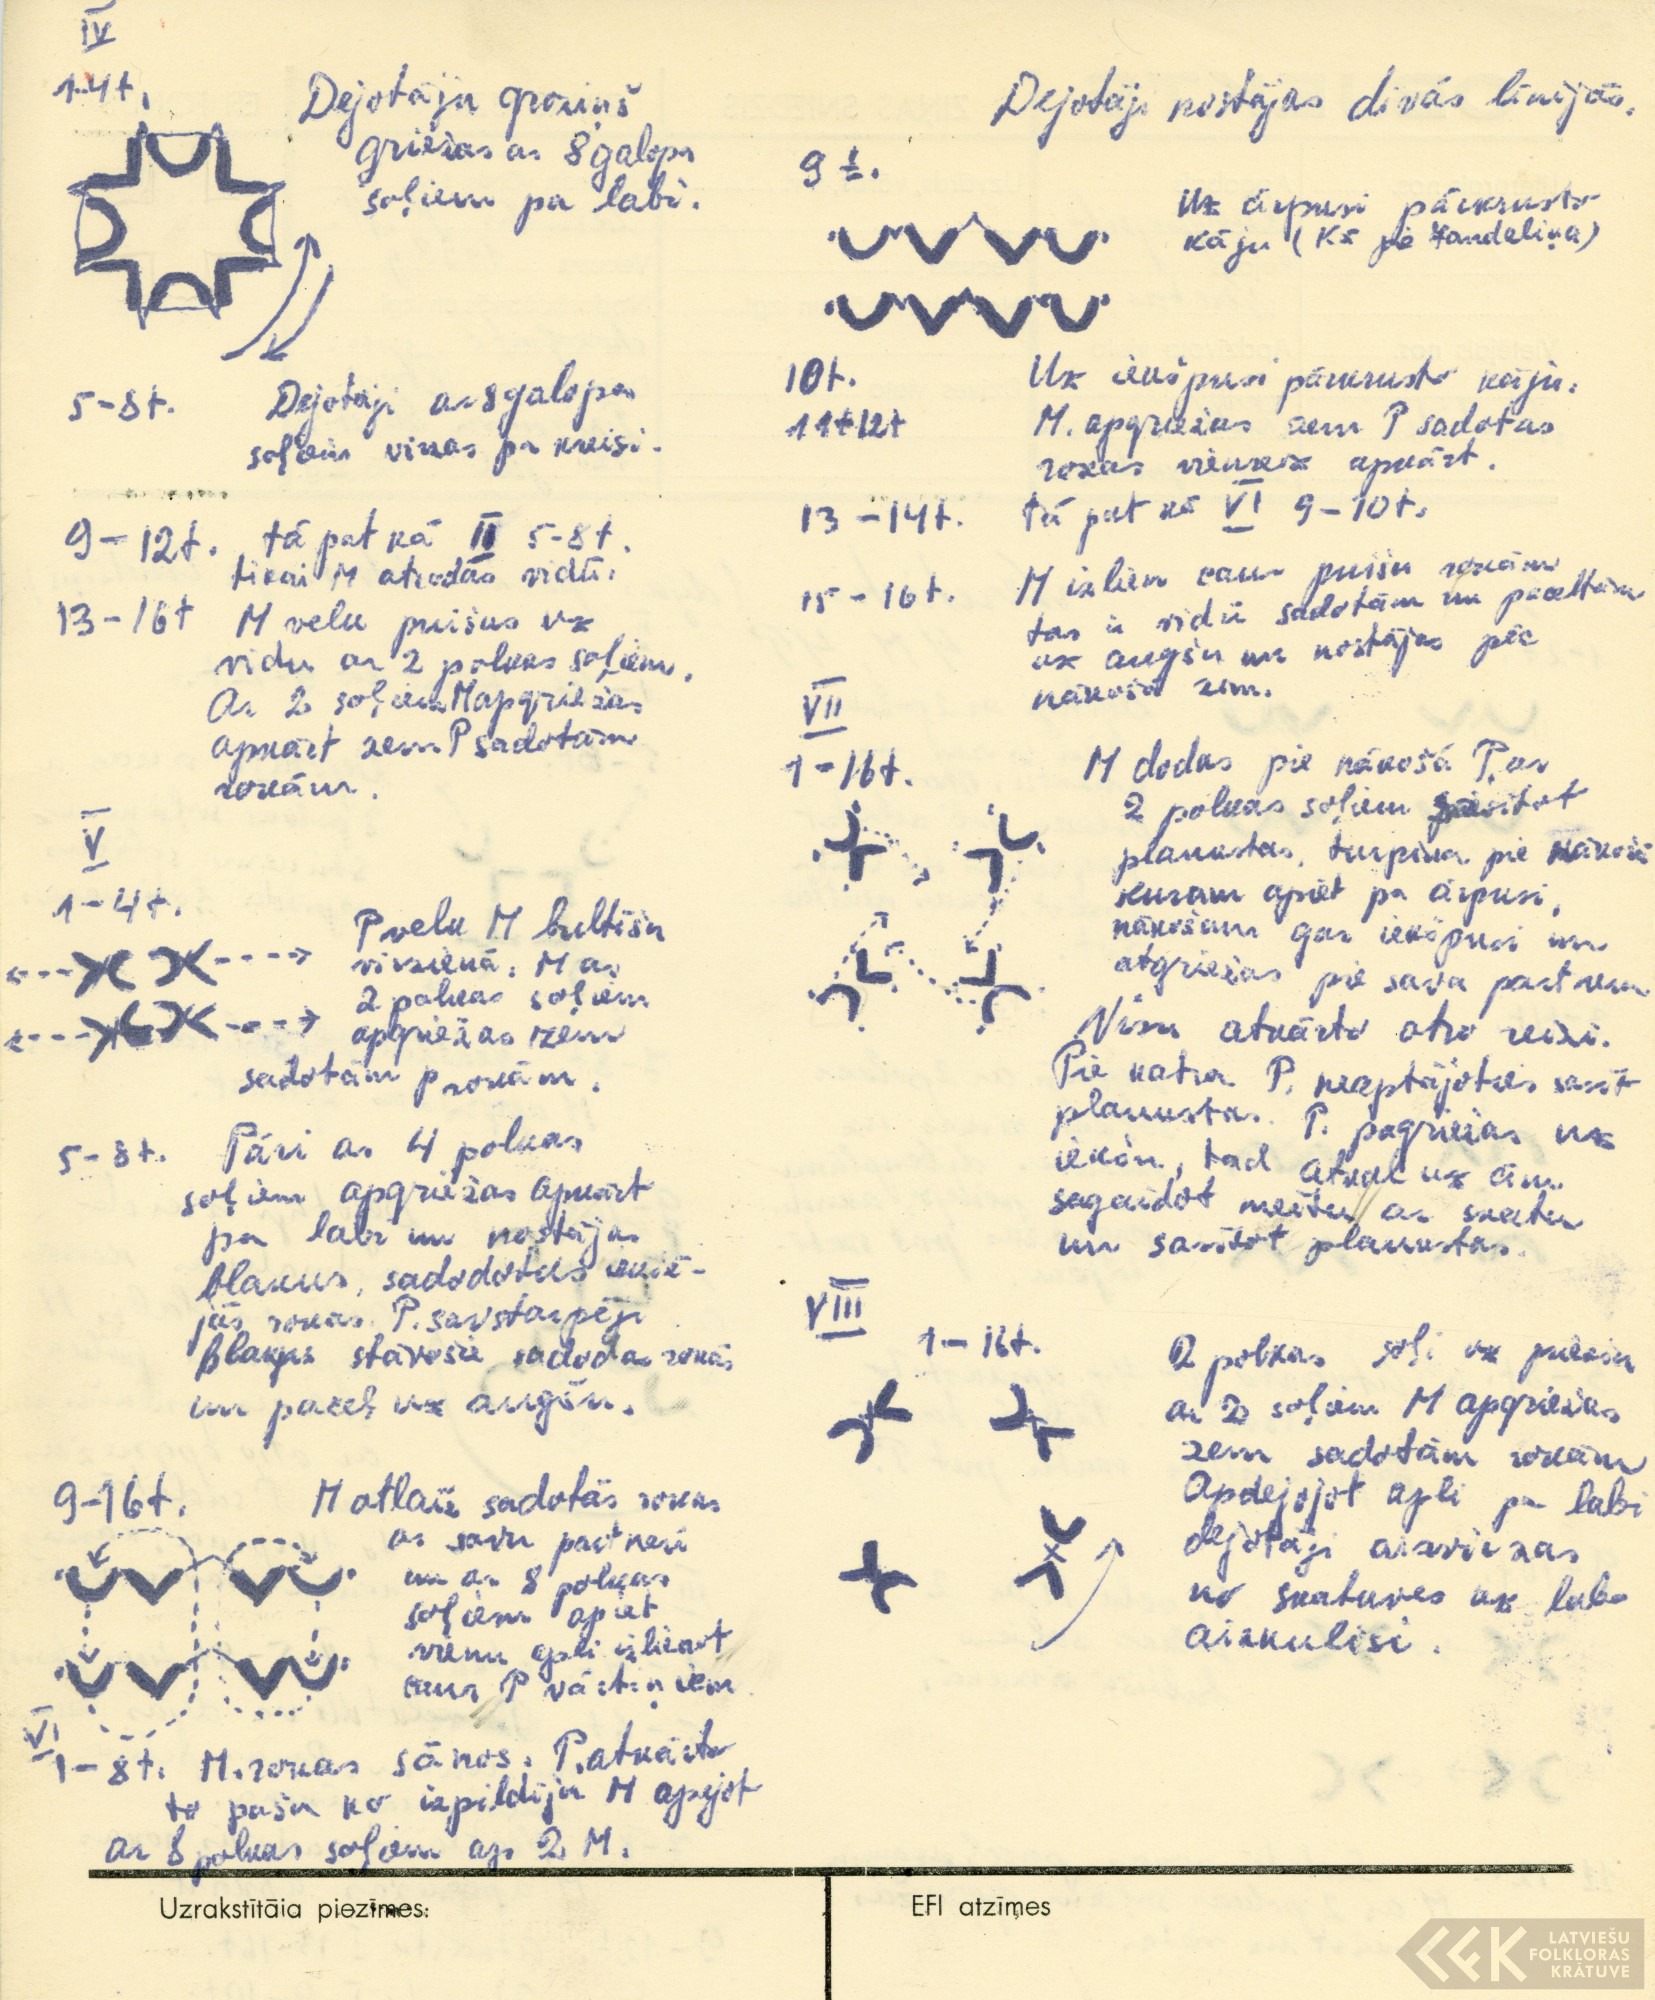 IV
1-4t.
Dejotāju groziņš
griežas ar 8 galopa
soļiem pa labi.
5-8t. Dejotāji ar 8 galopa
soļiem virzas pa kreisi.
9-12t. tā pat kā II 5-8t.
tikai M atrodas vidū.
13-16t M velk puišus uz
vidu ar 2 polkas soļiem.
Ar 2 soļiem M apgriežas
apkārt zem P sadotām
rokām.
V
1-4t.
P velk M bultiņu
virzienā. M ar
2 polkas soļiem
apgriežas zem
sadotām rokām.
5-8t. Pāri ar 4 polkas
soļiem apgriežas apkārt
pa labi un nostājas
blakus, sadodoties iekšē-
jās rokās. P. savstarpēji
blakus stāvošie sadodas rokās
un paceļ uz augšu.
9-16t. M atlaiž sadotās rokas
ar savu partneri
un ar 8 polkas
soļiem apiet
vienu apli izlienot
caur P vārtiņiem
VI
1-8t. M. rokas sānos. P. atkārto
to pašu ko izpildīja M apejot
ar 8 polkas soļiem ap 2 M.
Dejotāji nostājas divās līnijās.
9t.
Uz ārpusi pārkrusto
kāju (Kā pie Žandeliņa)
10t. Uz iekšpusi pārkrusto kāju.
11t+12t M. apgriežas zem P sadotas
rokas vienreiz apkārt.
13-14t. tā pat kā VI 9-10t.
15-16t. M izlien caur puišu rokām
tas ir vidū sadotām un paceltām
uz augšu un nostājas pēc
nākošā zīm.
VII
1-16t. M dodas pie nākošā P. ar
2 polkas soļiem sasitot
plaukstas, turpina pie nākošā
kuram apiet pa ārpusi,
nākošam gar iekšpusi un
atgriežas pie sava partnera
Visu atkārto otro reizi.
Pie katra P. neapstājoties sasit
plaukstas. P. pagriežas uz
iekšu, tad atkal uz āru
sagaidot meitu ar skatu
un sasitot plaukstas.
VIII
1-16t. 2 polkas soļi uz priekšu
ar 2 soļiem M apgriežas
zem sadotām rokām
Apdejojot apli pa labi
dejotāji aizvirzas
no skatuves uz labo
aizkulisi.
Uzrakstītāja piezīmes:
EFI atzīmes
LATVIEŠU
FOLKLORAS
KRĀTUVE